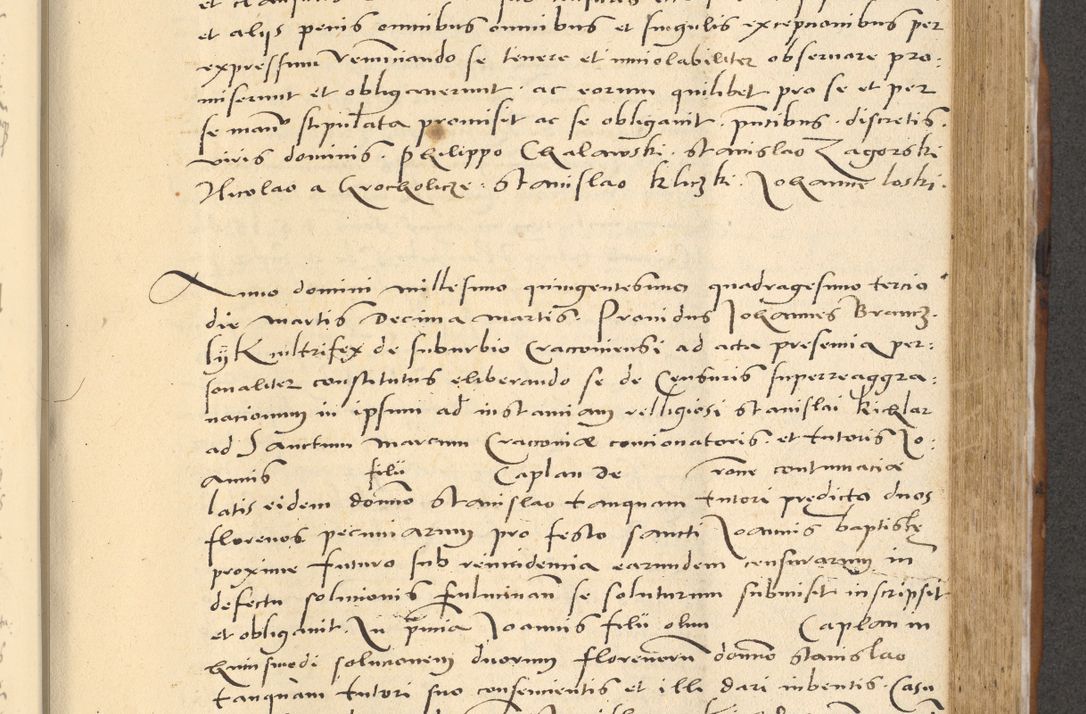 et alijs penis omnibus omnibus et singulis exceptionibus per
expressum renunciando se tenere et inviolabiliter observare pro:
miserunt et obligaverunt. ac eorum quilibet pro se et per
se manu stipulata promisit ac se obligavit. pntibus. discretis.
viris dominis. Philippo Chalawski. Stanislao Zagorski
Nicolao a Grocholicze. Stanislao kliczki. Johanne loski.
Anno domini millesimo quingentesimo quadragesimo tercio
die martis Decima martis. Providus Johannes Brancz.
lyk cultrifex de suburbio Cracoviensi ad acta presentia per:
sonaliter constitutus eliberando se de Censuris superreaggra:
nationum in ipsum ad instantiam relligiosi Stanislai kiczlar
ad Sanctum marcum Cracoviæ concionatoris. et tutoris Jo:
annis filii Caplan De rone contumaciæ
latis eidem domino Stanislao tanquam tutori prędicto duos
florenos pecuniarum pro festo sancti Joannis baptistę
proxime futuro sub reincidentia earundem censurarum in
defectu solutionis fulminan se soluturum submisit inscripsit
et obligavit. In pntia Joannis filii olim Caplan in
huiusmodi solucionem duorum florenorum domino Stanislao
tanquam tutori suo consencientis et illi dari iubentis. Casu